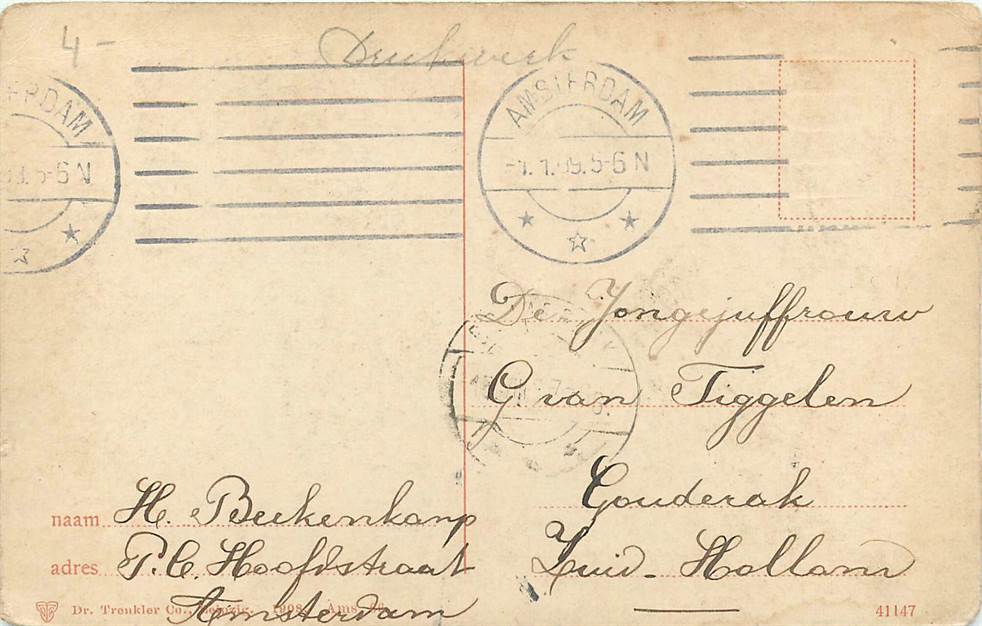 4-
Drukwerk
AMSTERDAM
6 N
AMSTERDAM
-1.1.09.5-6 N
De Jongejuffrouw
G van Tiggelen
Gouderak
Zuid-Holland
naam H. Beekenkamp
adres P.C. Hoofdstraat
Amsterdam
Dr. Trenkler Co., Leipzig. 1908. Ams.
41147